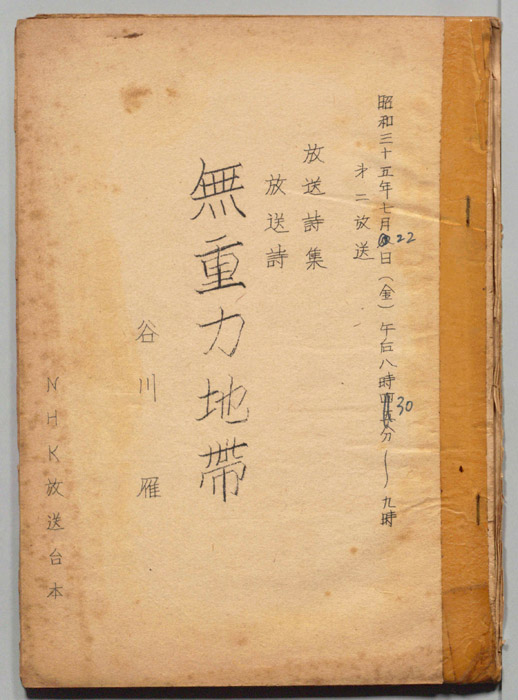 昭和三十五年七月22日(金)午后八時30分～九時
才二放送
放送詩集
放送詩
無重力地帯
谷川雁
NHK放送台本